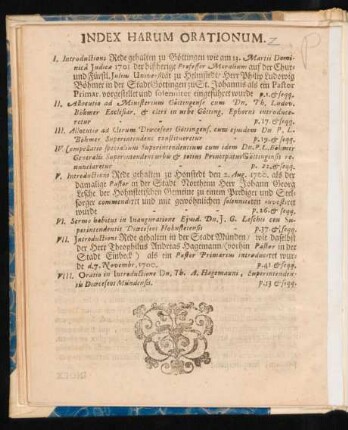 INDEX HARUM ORATIONUM.
I. Introductions Rede gehalten zu Göttingen wie am 13. Martii Domi-
nicâ Judica 1701 der bißherige Professor Moralium auf der Chur-
und Fürstl. Julius Universität zu Helmstedt Herr Philip Ludowig
Böhmer in der Stadt Göttingen zu St. Johannis als ein Pastor
Primar. vorgestellet und solenniter eingeführet wurde p.1.&seqq.
II. Allocutio ad Ministerium Göttingense cum Dn. Th. Ludov.
Böhmer Ecclesiæ, & cleri in urbe Götting. Ephorus introduce-
retur p.17.&seqq.
III. Allocutio ad Clerum Diœceseos Göttingens. cum ejusdem Dn P. L.
Böhmer Superintendens constitueretur p.19.&seqq.
IV Compellatio specialium Superintendentium cum idem Dn. P.L. Böhmer
Generalis Superintendens urbis & totius Principatus Göttingensis re-
nunciaretur p. 22.&seqq.
V. Introductions Rede gehalten zu Honstedt den 2. Aug. 1700. als der
damalige Pastor in der Stadt Northeim Herr Johann Georg
Lesche der Hohnstetischen Gemeine zu einem Prediger und Seel-
sorger commendirt und mit gewöhnlichen solennitæten investiret
wurde p.26.& seqq.
VI. Sermo habitus in Inauguratione Ejusd. Dn. J. G. Leschii cum Su-
perintendentis Diœceseos Hohnstetensis p.37.&seqq.
VII. Introductions Rede gehalten in der Stadt Münden / wie daselbst
der Herr Theophilus Andreas Hagemann (vorhin Pastor in der
Stadt Einbeck) als ein Pastor Primarius introduceret wur-
de d.7. Novembr. 1700. p.41 &seqq.
VIII. Oratio in Introductione Dn. Th. A. Hagemanni, Superintenden-
tis Diœceseos Mündensis. p.53 &seqq.